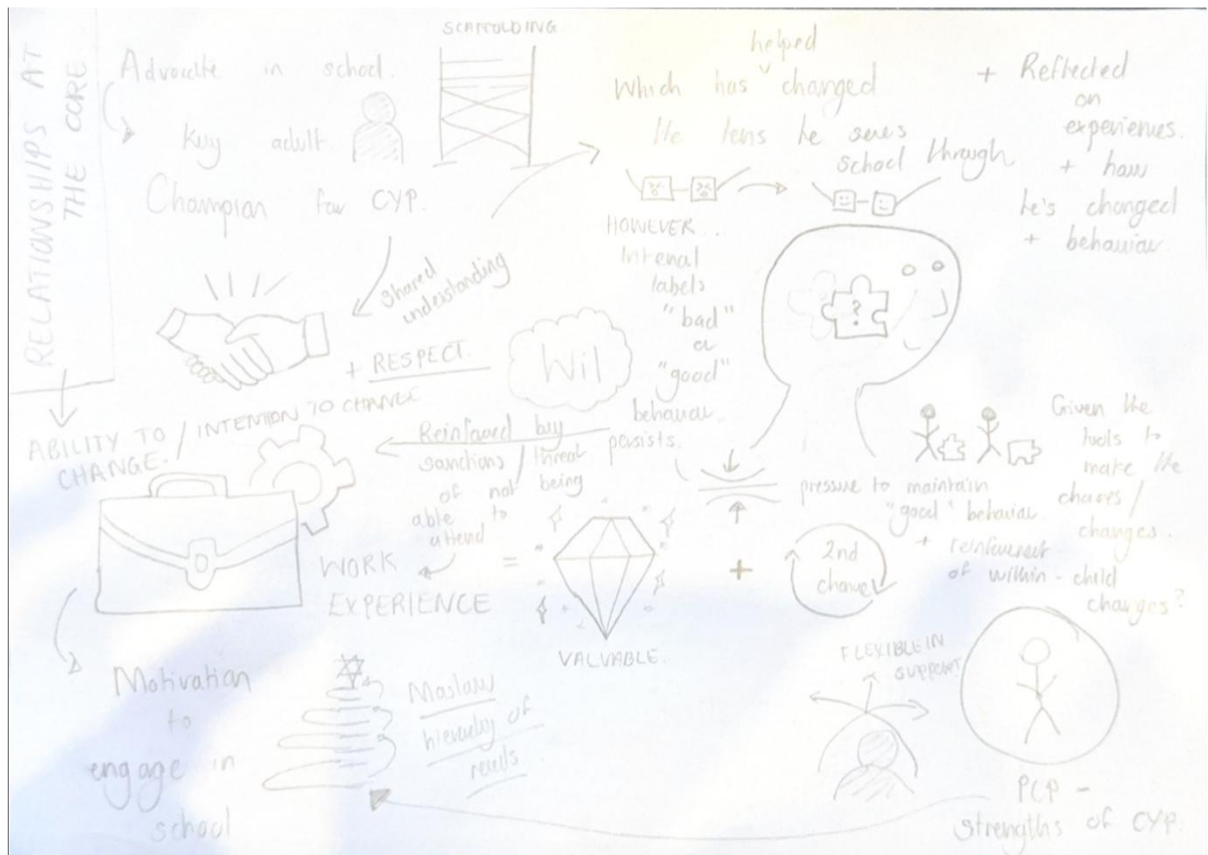 RELATIONSHIPS AT
THE CORE
Advocate in school.
Key adult.
Champion for CYP.
SCAFFOLDING.
helped
Which has changed
the lens he sees
school through
+ Reflected
on
experiences.
+ how
he's changed
+ behaviour.
shared
understanding
+ RESPECT.
Wil
HOWEVER...
Internal
labels
"bad"
or
"good"
behaviour
persists.
?
ABILITY TO / INTENTION TO CHANGE
CHANGE.
Reinforced by
sanctions / threat
of not being
able to
attend
WORK
EXPERIENCE
=
VALUABLE.
+
2nd
chance
pressure to maintain
"good" behaviour.
+ reinforcement
of within-child
changes?
Given the
tools to
make the
changes.
Motivation
to
engage in
school
Maslow
hierarchy of
needs
FLEXIBLE IN
SUPPORT.
PCP -
strengths of CYP.